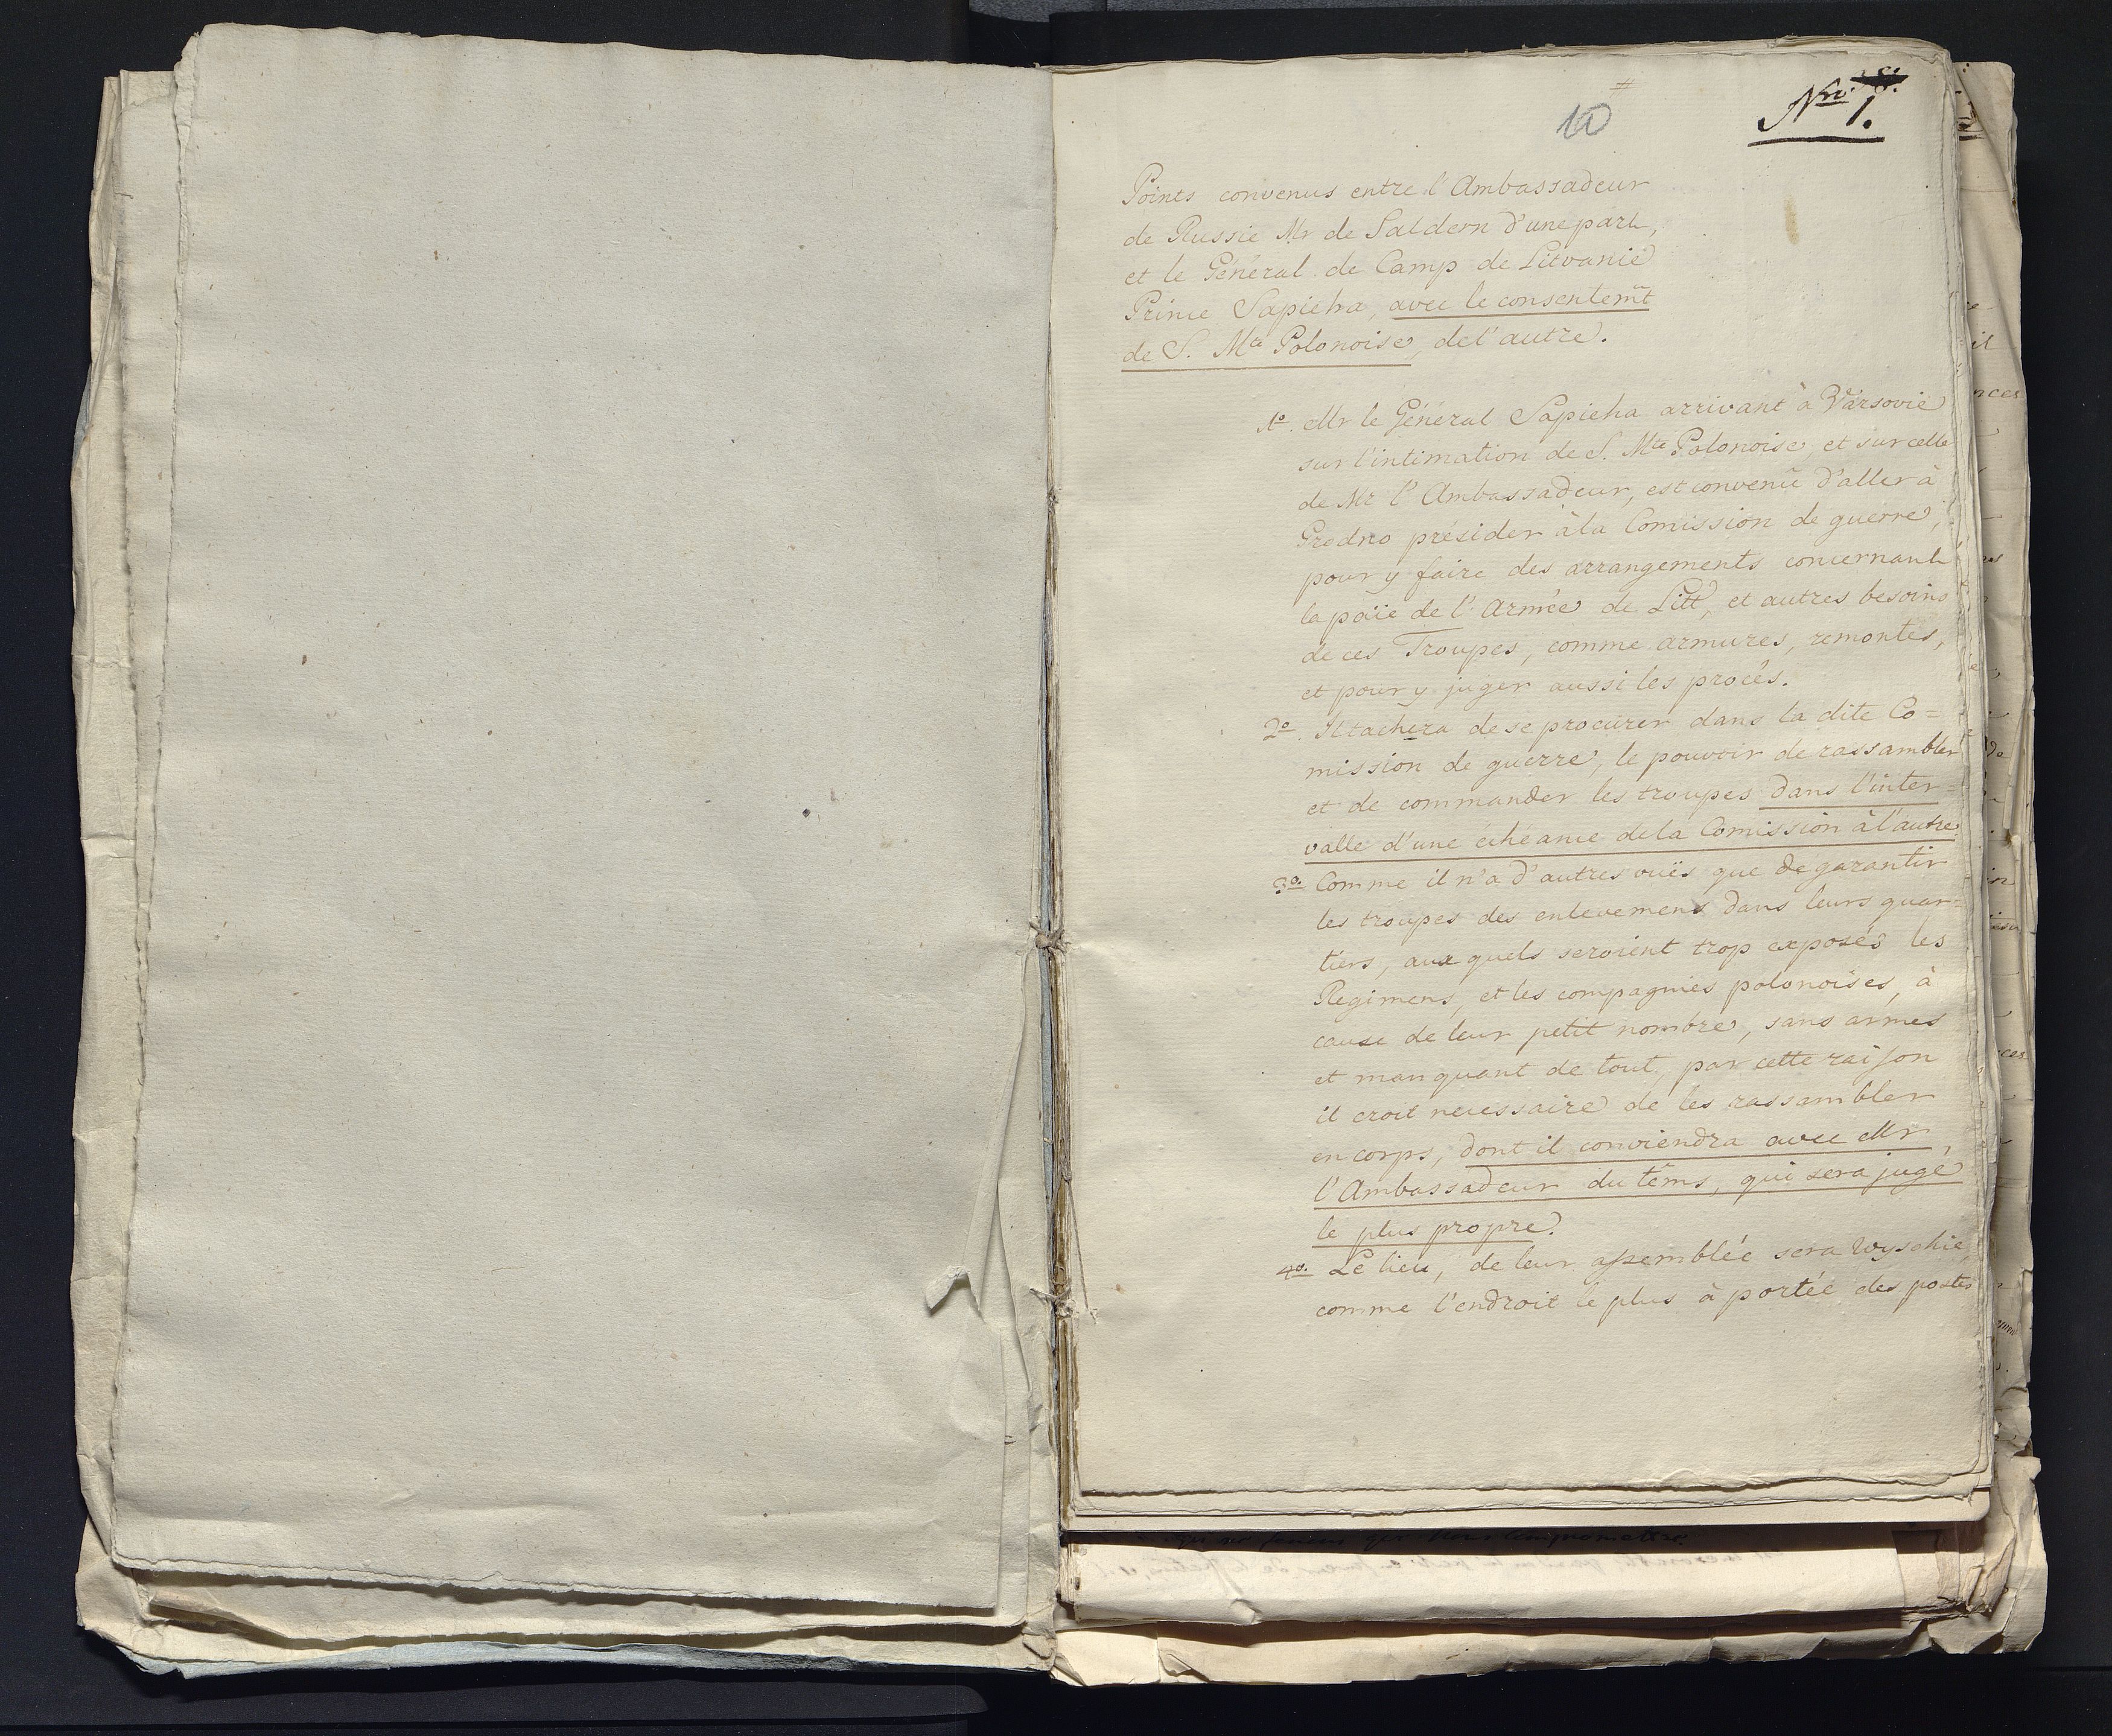 10
Nro. 1.
Points convenus entre l'Ambassadeur
de Russie Mr de Saldern d'une part,
et le Général de Camp de Litvanie
Prince Sapieha, avec le consentemt
de S. Mte Polonoise, de l'autre.
1o. Mr le Général Sapieha arrivant à Varsovie
sur l'intimation de S. Mte Polonoise, et sur celle
de Mr l'Ambassadeur, est convenü d'aller à
Grodno présider à la Comission de guerre,
pour y faire des arrangements concernant
la païe de l'Armée de Litt, et autres besoins
de ces Troupes, comme armures, remontes,
et pour y juger aussi les procês.
2o. Il tachera de se procurer dans la dite Co=
mission de guerre, le pouvoir de rassambler
et de commander les troupes dans l'inter=
valle d'une échéance de la Comission à l'autre.
3o. Comme il n'a d'autres vuës que de garantir
les troupes des enlevemens dans leurs quar=
tiers, aux quels seroient trop exposés les
Regimens, et les compagnies polonoises, à
cause de leur petit nombre, sans armes
et manquant de tout, par cette raison
il croit necessaire de les rassambler
en corps, dont il conviendra avec Mr
l'Ambassadeur du têms, qui sera jugé
le plus propre.
4o. Le lieu, de leur assemblée sera Wyschie,
comme l'endroit le plus à portée des postes